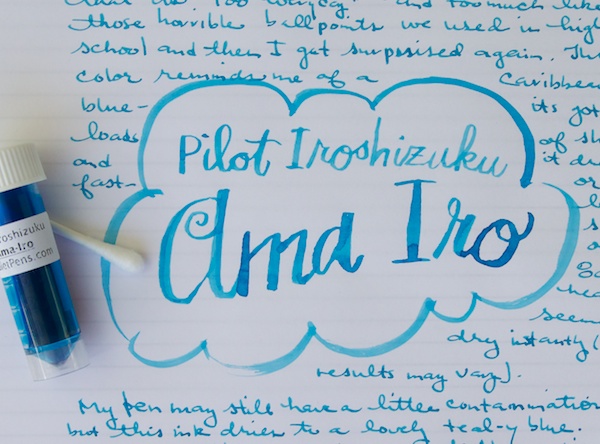 and too much like
those horrible ballpoints we used in high
school and then I got surprised again. This
color reminds me of a Caribbean
blue- its got
loads of sh
and it d
fast- or
Pilot Iroshizuku
Ama Iro
roshizuku
Ama-Iro
Pens.com
seem
dry instantly (
results may vary).
My pen may still have a little contamination
but this ink dries to a lovely teal-y blue.